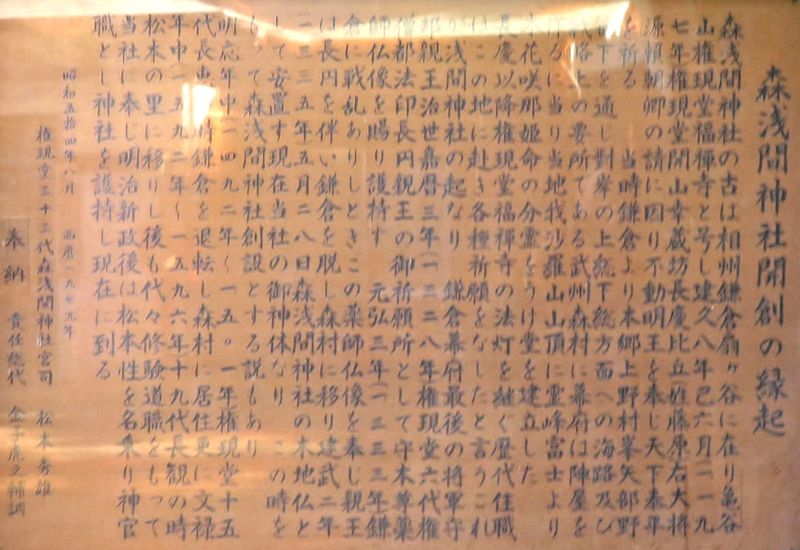 森浅間神社開創の縁起
森浅間神社の古は相州鎌倉扇ヶ谷に在り亀谷
山権現堂福禅寺と号し建久八年巳六月(一一九
七年権現堂開山幸蔵坊長慶比丘姓藤原右大将
源頼朝卿の請に因り不動明王を奉じ天下泰平
を祈る 当時鎌倉より本郷上野村峯矢部野
下を通し對岸の上総下総方面への海路及び
戦略上の要所である武州森村に幕府は陣屋を
るに当り当地我沙羅山山頂に霊峰富士より
花咲那姫命の分霊をうけ堂を建立した
長慶以降権現堂福禅寺の法灯を継ぐ歴代住職
はこの地に赴き各種祈願をなしたと言うこれ
が浅間神社の起なり 鎌倉幕府最後の将軍守
邦親王治世嘉暦三年(一三二八年権現堂六代権
僧都法印長円親王の御祈願所として守本尊薬
師仏像を賜り護持す 元弘三年(一三三三年鎌
倉に戦乱ありしときこの薬師仏像を奉し親王
は長円を伴い鎌倉を脱し森村に移り建武二年
一三三五年五月二八日森浅間神社の本地仏と
して安置す現在当社の御神体なり この時を
もって森浅間神社創設とする説もあり
明応年中(一四九二年〜一五〇一年権現堂十五
代長 時鎌倉を退転し森村に居住更に文禄
年中(一五九二年〜一五九六年十九代長観の時
松本の里に移りし後も代々修験道職をもって
当社に奉じ明治新政後は松本性を名乗り神官
職とし神社を護持し現在に到る
昭和五拾四年八月 西暦一九七九年
権現堂三十三代森浅間神社宮司 松本秀雄
奉納 責任総代 金子虎之輔調